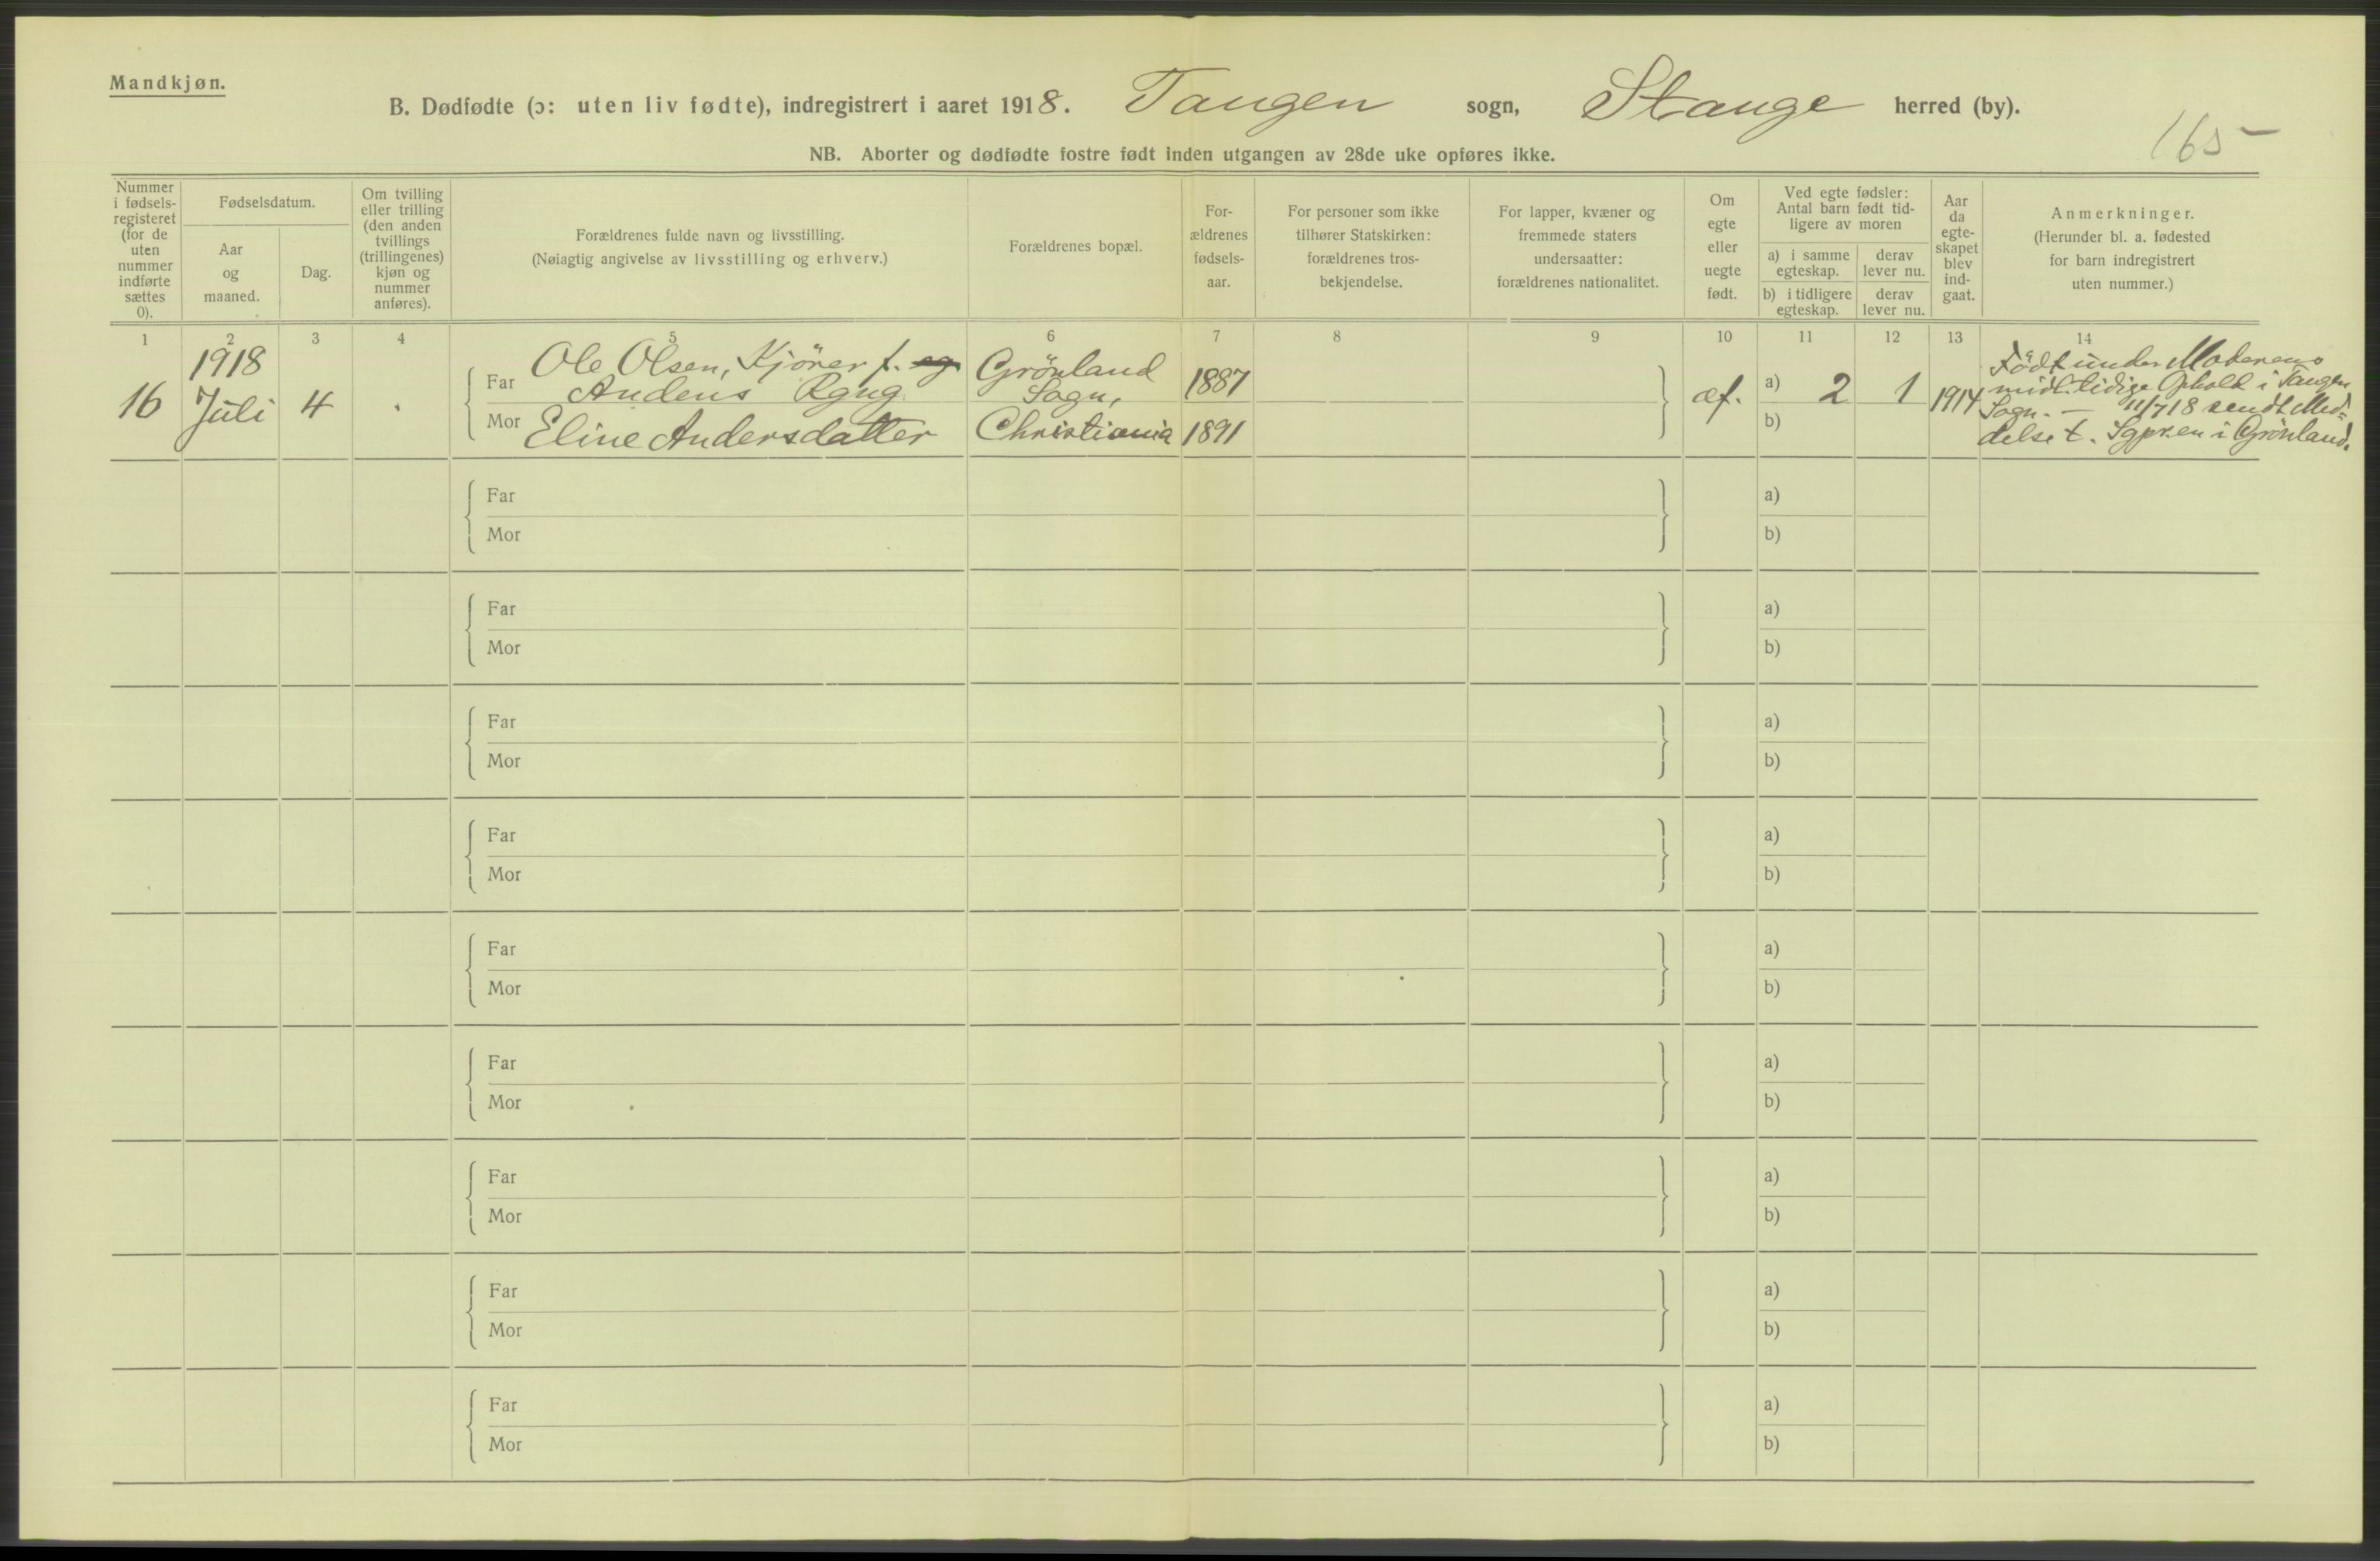 Mandkjøn.
B. Dødfødte (ɔ: uten liv fødte), indregistrert i aaret 1918. Tangen sogn, Stange herred (by).
165 –
NB. Aborter og dødfødte fostre født inden utgangen av 28de uke opføres ikke.
Nummer
i fødsels-
registeret
(for de
uten
nummer
indførte
sættes
0).
Fødselsdatum.
Aar
og
maaned.
Dag.
Om tvilling
eller trilling
(den anden
tvillings
(trillingenes)
kjøn og
nummer
anføres).
Forældrenes fulde navn og livsstilling.
(Nøiagtig angivelse av livsstilling og erhverv.)
Forældrenes bopæl.
For-
ældrenes
fødsels-
aar.
For personer som ikke
tilhører Statskirken:
forældrenes tros-
bekjendelse.
For lapper, kvæner og
fremmede staters
undersaatter:
forældrenes nationalitet.
Om
egte
eller
uegte
født.
Ved egte fødsler:
Antal barn født tid-
ligere av moren
a) i samme
egteskap.
derav
lever nu.
b) i tidligere
egteskap.
derav
lever nu.
Aar
da
egte-
skapet
blev
ind-
gaat.
Anmerkninger.
(Herunder bl. a. fødested
for barn indregistrert
uten nummer.)
1 2 3 4 5 6 7 8 9 10 11 12 13 14
16
1918
Juli
4
Far Ole Olsen, Kjörer f.
Andens Rgng
Mor Eline Andersdatter
Grönland
Sogn,
Christiania
1887
1891
æf.
a) 2 1
b)
1914
Födt under Moderens
midltidige Ophold i Tangen
Sogn. – 11/7 18 sendt Med=
delse t. Sgpr.en i Grönland.
Far
Mor
a)
b)
Far
Mor
a)
b)
Far
Mor
a)
b)
Far
Mor
a)
b)
Far
Mor
a)
b)
Far
Mor
a)
b)
Far
Mor
a)
b)
Far
Mor
a)
b)
Far
Mor
a)
b)